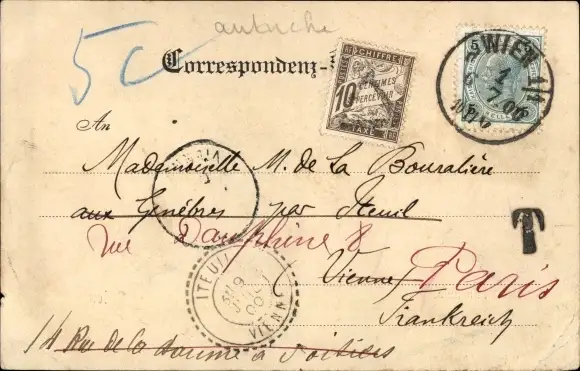 autriche
5c
Correspondenz-
CHIFFRE
10 CENTIMES
À PERCEVOIR
TAXE
5
WIEN 1/1
7.00
An
Mademoiselle M. de la Bouralière
aux Genêbres par Iteuil
rue Dauphine 8
Vienne Paris
Frankreich
T
ITEUIL
9
00
VIENNE
14 Rue de la
à Poitiers